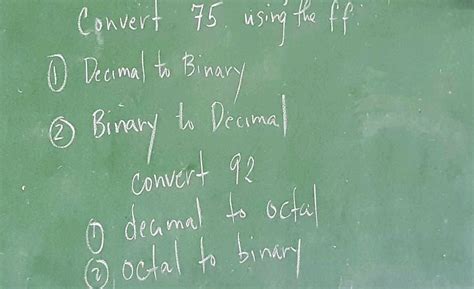 Convert 75 using the ff:
① Decimal to Binary
② Binary to Decimal
convert 92
① decimal to octal
② octal to binary